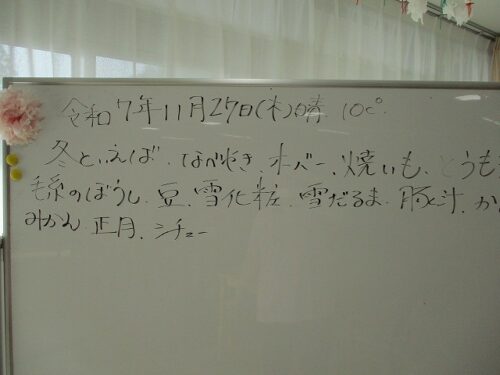 令和7年11月27日(木)晴 10c°
冬といえば、なべやき、オーバー、焼いも、とうも
毛糸のぼうし、豆、雪化粧、雪だるま、豚と汁、か
みかん、正月、シチュー